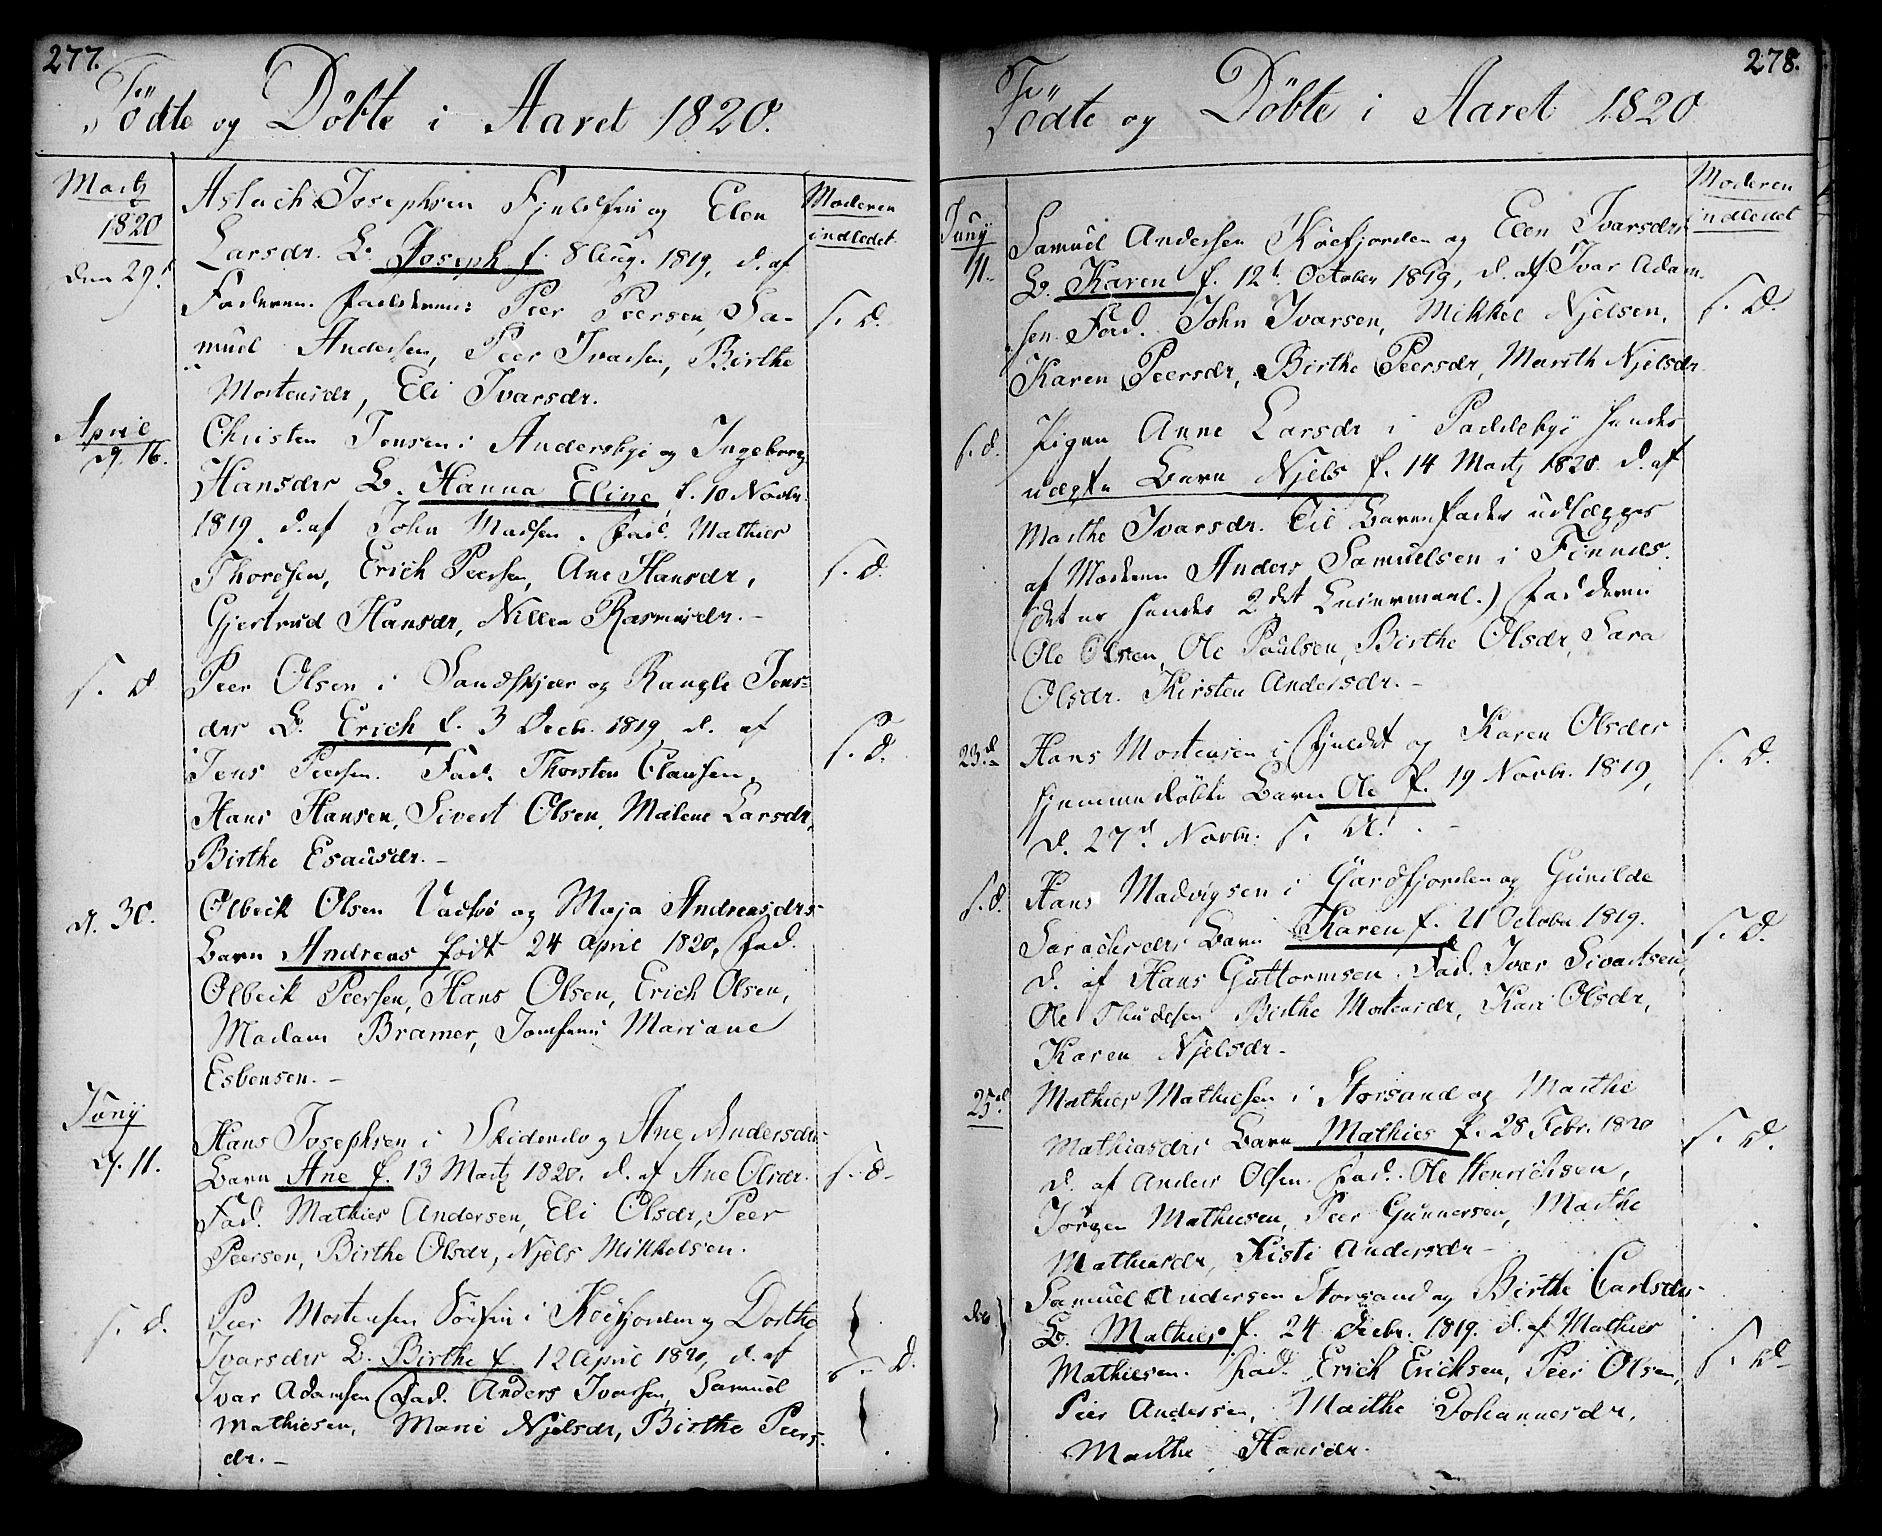 277.
Födte og Döbte i Aaret 1820.
Martz
1820
den 29d
Moderen
indledet
Aslach Josephsen Fjeldfin og Elen
Larsdr. B. Joseph f. 8 Aug. 1819, d. af
Faderen. Fadderne: Peer Peersen, Sa-
muel Andersen, Peer Ivarsen, Birthe
Mortensdr, Eli Ivarsdr.
s. d.
April
d. 16.
Christen Jensen i Andersbye og Ingeborg
Hansdr B. Hanna Eline f. 10 Novbr.
1819. d. af John Madsen. Fad. Mathies
Thordsen, Erich Peersen, Ane Hansdr,
Gjertrud Hansdr, Nillen Rasmusdr. -
s. d.
s. d.
Peer Olsen i Sandskjær og Rangle Jens-
dr B. Erich f. 3 Decbr. 1819 d. af
Jens Peersen. Fad. Thorsten Clausen,
Hans Hansen, Sivert Olsen, Malene Larsdr,
Birthe Esausdr. -
s. d.
d. 30.
Olbeck Olsen Vadsö og Maja Andreasdrs
Barn Andreas födt 24 April 1820, Fad.
Olbeck Peersen, Hans Olsen, Erich Olsen,
Madam Bramer, Jomfrue Mariane
Esbensen. -
Junij
d. 11.
Hans Josephsen i og Ane Andersdrs
Barn Ane f. 13 Martz 1820. d. af Ane Olsdr.
Fad. Mathies Andersen, Eli Olsdr, Peer
Peersen, Birthe Olsdr, Njels Mikkelsen.
s. d.
s. d.
Peer Mortensen Söefin i Köefjorden og Dorthe
Ivarsdr B. Birthe f. 12 April 1820, d. af
Ivar Adamsen Fad. Anders Ivarsen, Samuel
Mathiesen, Marie Njelsdr, Birthe Peers-
dr. -
s. d.
278.
Födte og Döbte i Aaret 1820
Moderen
indledet
Junij
11.
Samuel Andersen Köefjorden og Elen Ivarsdrs
B. Karen f. 12t October 1819, d. af Ivar Adam-
sen. Fad. John Ivarsen, Mikkel Njelsen,
Karen Peersdr, Birthe Peersdr, Marith Njelsdr
s. d.
s. d.
Pigen Anne Larsdr i Paddebye hendes
uægte Barn Njels f. 14 Martz 1820. d. af
Marthe Ivarsdr. Til Barnefader udlægges
af Moderen Anders Samuelsen i Finnæs.
(det er hendes 2det Leiermaal.) Fadderne
Ole Olsen, Ole Paulsen, Birthe Olsdr, Sara
Olsdr. Kirsten Andersdr. -
23d
Hans Mortensen i Fjeldet og Karen Olsdrs
hjemmedöbte Barn Ole f. 19 Novbr. 1819,
d. 27d Novbr.
s. d.
s. d.
Hans Madvigsen i Gårdfjorden og Gunilde
Sarachsdrs Barn Karen f. 21 October 1819.
d. af Hans Guttormsen. Fad. Iver Sivertsen,
Ole Birthe Mortensdr, Kari Olsdr,
Karen Njelsdr.
s. d.
25d.
Mathies Mathiesen i Storsand og Marthe
Mathiasdrs Barn Mathies f. 28 Febr. 1820
d. af Anders Olsen. Fad. Ole Henrichsen,
Jörgen Mathiesen, Peer Gunnersen, Marthe
Mathiasdr, Kisti Andersdr -
s. d.
Samuel Andersen Storsand og Birthe Carlsdrs
B. Mathies f. 24 Decbr. 1819. d. af Mathies
Mathiesen. Fad. Erich Ericksen, Peer Olsen,
Peer Andersen, Marthe Johannesdr,
Marthe Hansdr.
s. d.